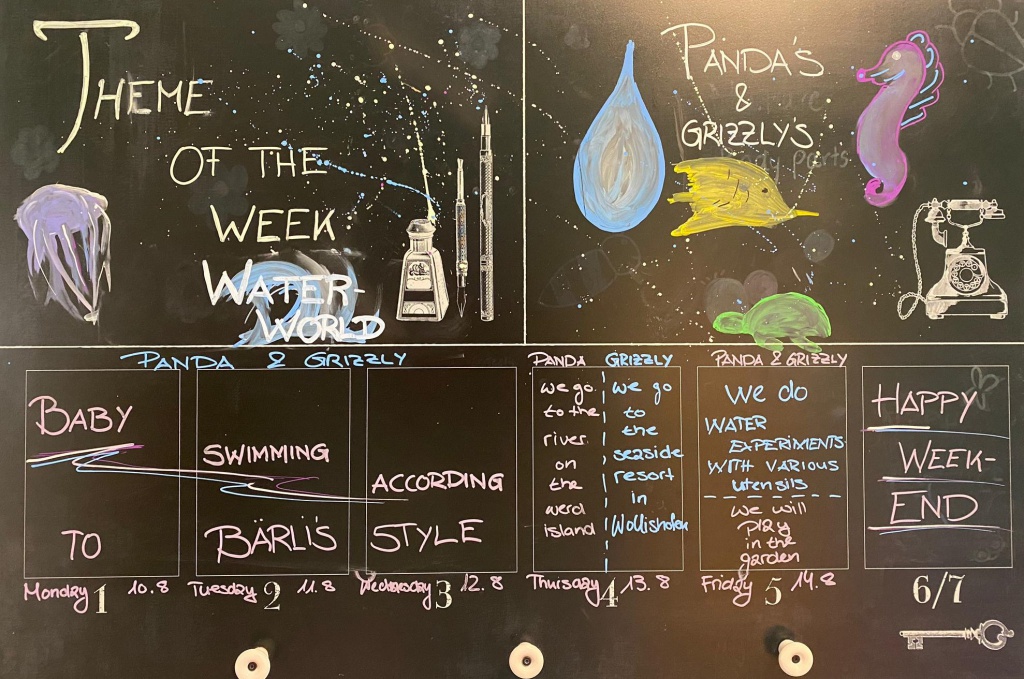 THEME
OF THE
WEEK
WATER-
WORLD
PANDA'S
&
GRIZZLY'S
PANDA & GRIZZLY
BABY
SWIMMING
ACCORDING
TO
BÄRLI'S
STYLE
PANDA
we go
to the
river
on
the
werd
island
GRIZZLY
we go
to
the
seaside
resort
in
Wollishofen
PANDA & GRIZZLY
We do
WATER
EXPERIMENTS
WITH VARIOUS
utensils
we will
play
in the
garden
HAPPY
WEEK-
END
Monday 1 10.8
Tuesday 2 11.8
Wednesday 3 12.8
Thursday 4 13.8
Friday 5 14.8
6/7